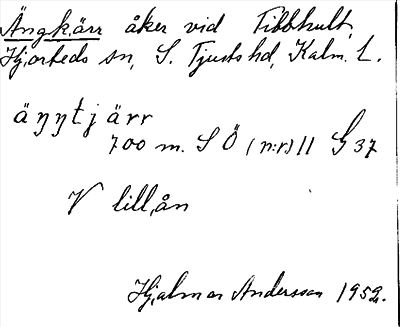 Ängkärr åker vid Fibbhult,
Hjorteds sn, S. Tjusts hd, Kalm. L.
äŋŋtjärr
700 m. SÖ (n:r) 11 G 37
V lillån
Hjalmar Andersson 1952.